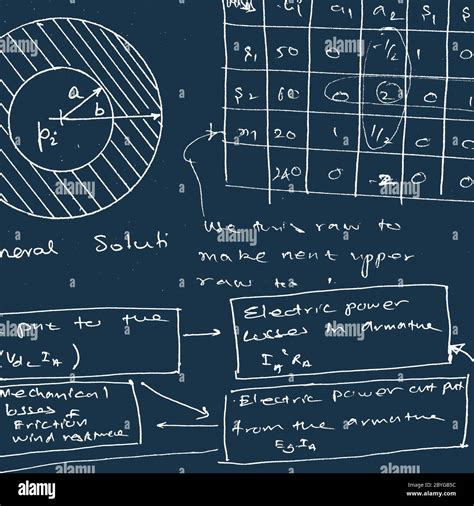 a₁ a₂ S₁ S
S₁ 50 0 -1/2 1 0
S₂ 60 0 2 0 1
m 20 1 1/2 0 0
240 0 -2 0
a
b
Pi
neral Soluti
use this raw to
make next upper
raw to
put to the
(Vdc IA)
Electric power
losses in armature
Ia² RA
Mechanical
losses of
Friction
wind resistance
Electric power out put
from the armature
Eg IA
alamy
Image ID: 2BYGB5C
www.alamy.com